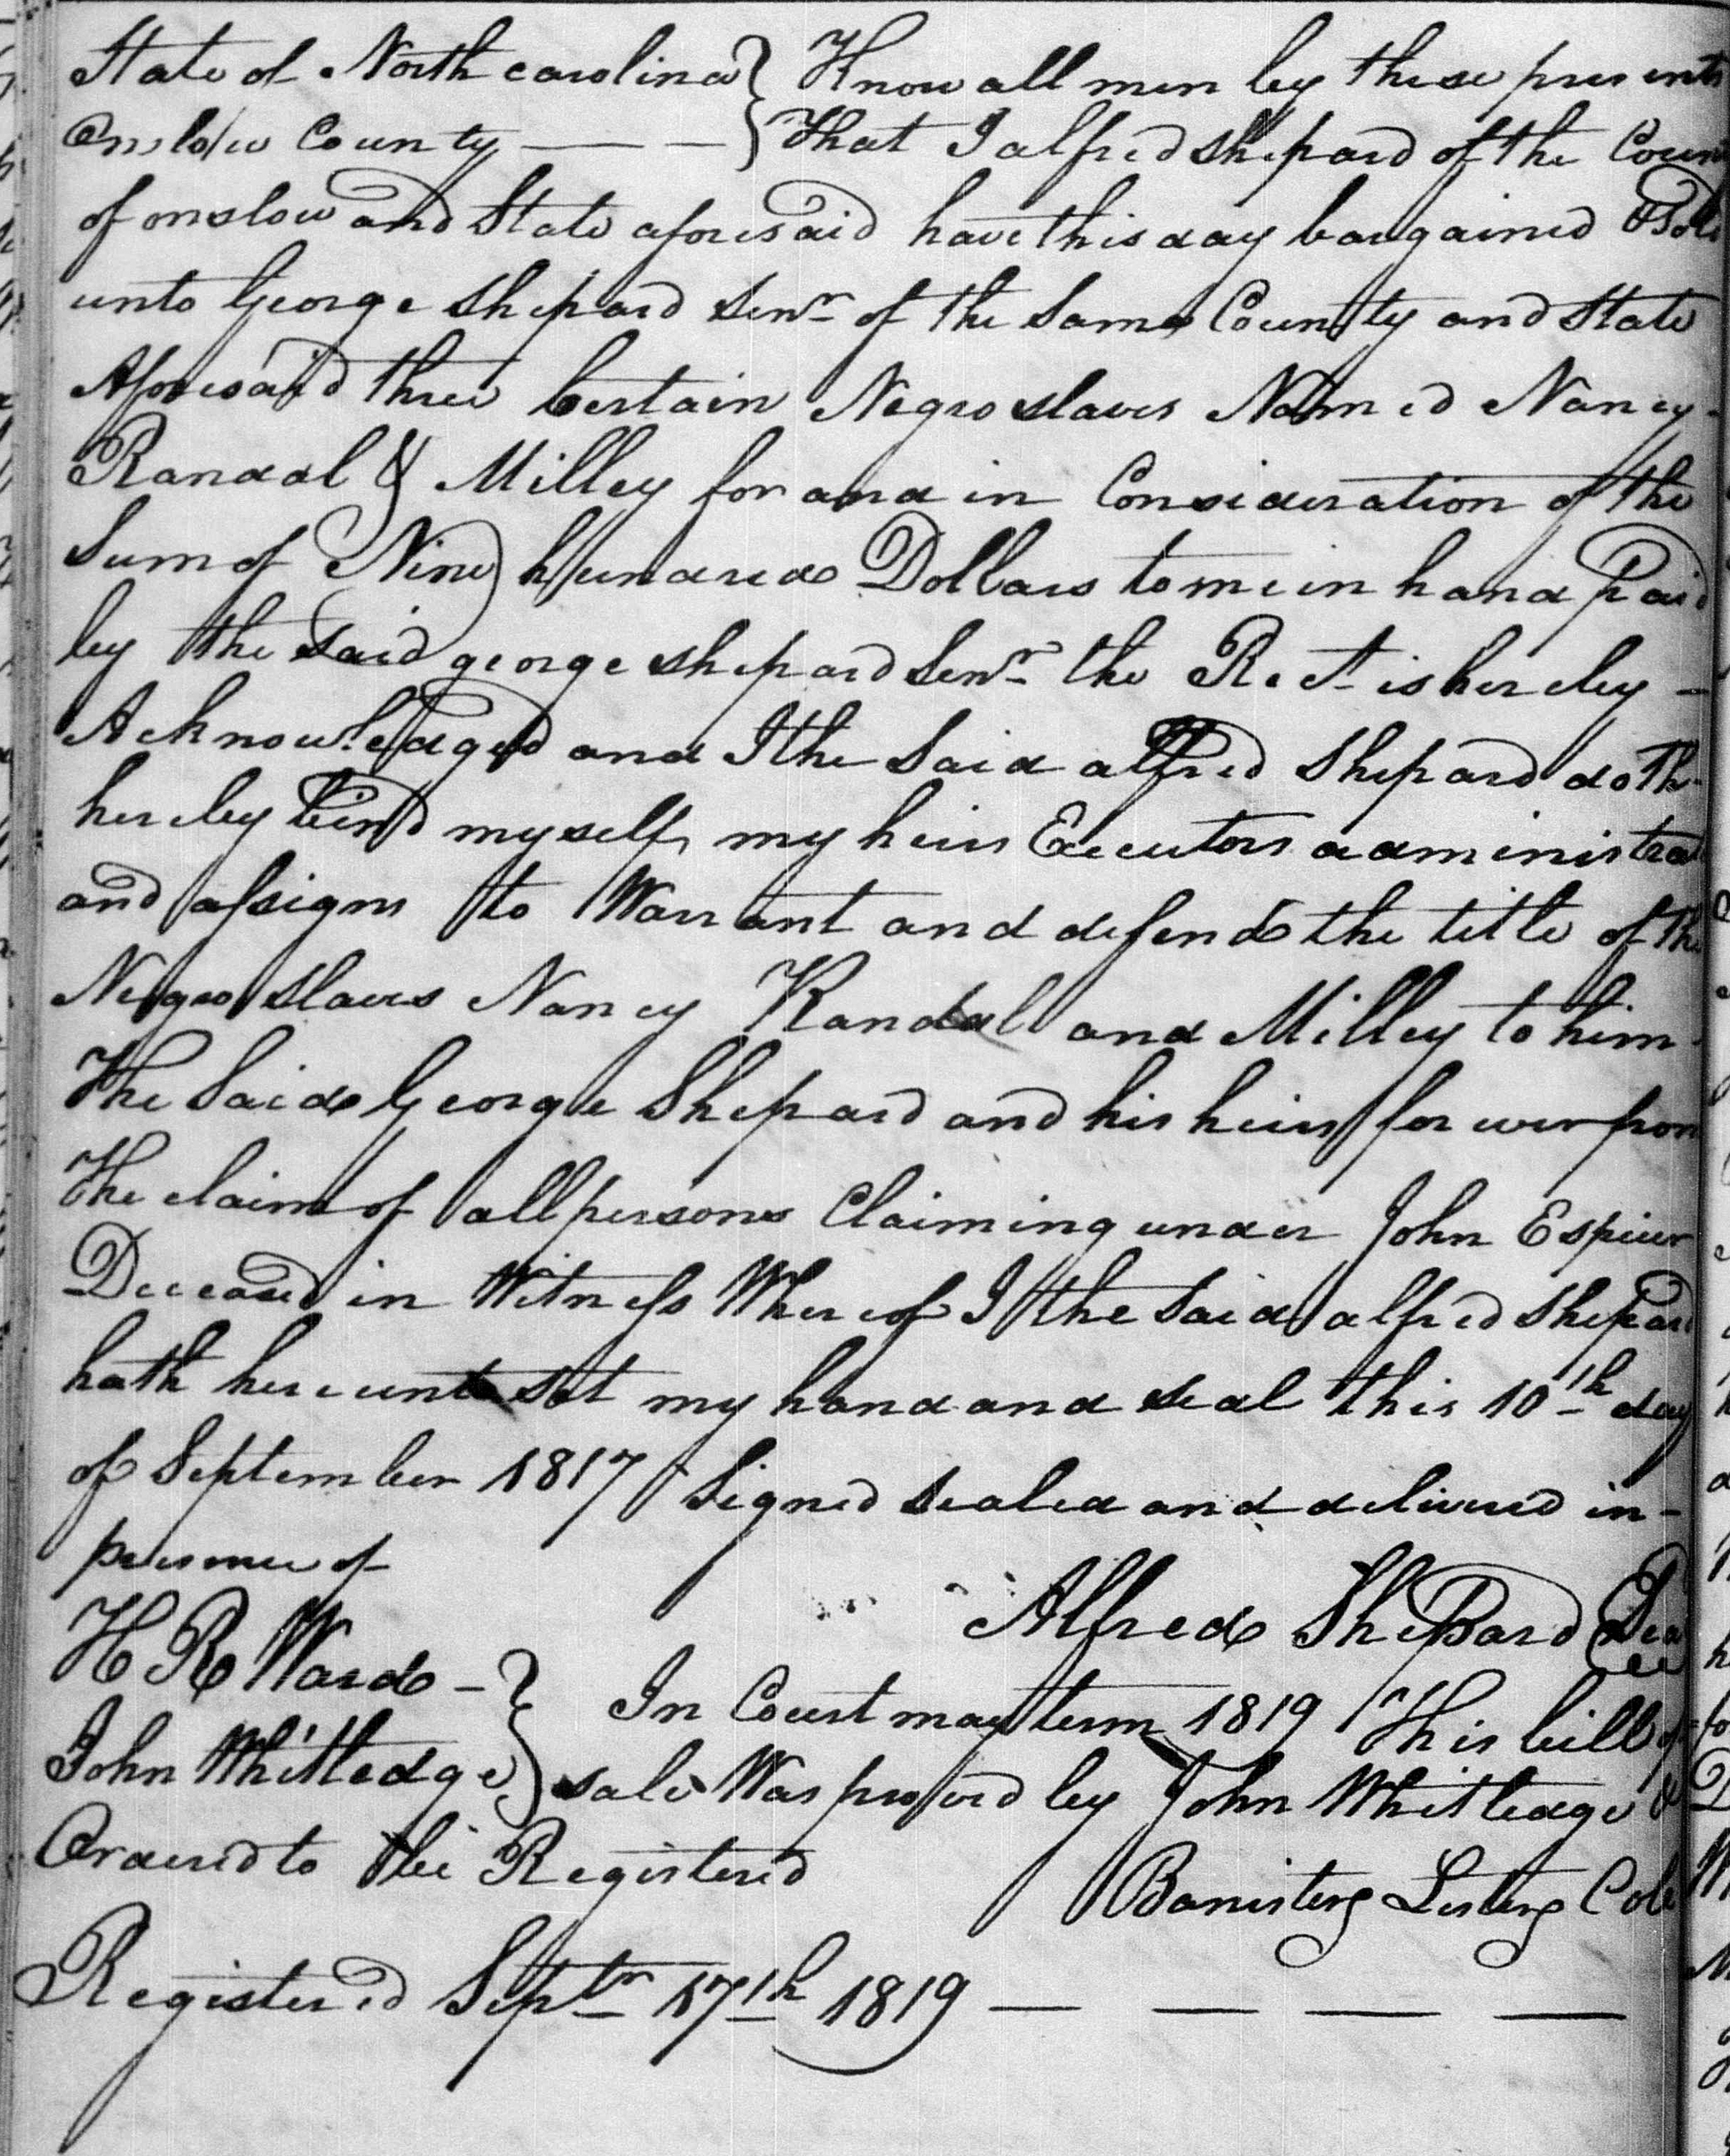 State of North carolina } Know all men by these presents
Onslow County — — } That I alfred shepard of the Coun
of onslow and State aforesaid have this day bargained & Sold
unto George Shepard Senr of the Same County and State
Aforesaid three Certain Negro slaves Named Nancy
Randal & Milley for and in Consideration of the
Sum of Nine hundred Dollars to me in hand Paid
by the Said george shepard Senr the Rect is hereby –
Acknowledged and I the Said alfred Shepard doth
hereby bind myself, my heirs Executors administra
and assigns to Warrant and defend the title of the
Negro slaves Nancy Randal and Milley to him
The Said George Shepard and his heirs for ever from
The claim of all persons Claiming under John Espiur
Deceased in Witness Whereof I the Said alfred Shepard
hath hereunto Set my hand and seal this 10th day
of September 1817 Signed sealed and delivered in-
presence of
Alfred ShePard Sea
H R Ward – } In Court may term 1819 This bill of
John Whitledge } sale Was proved by John Whitledge &
Ordered to be Registered
Banister Lester Col
Registered Septr 17th 1819 — — — —